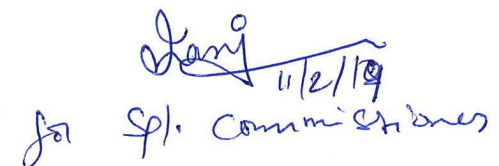 11/2/19
for Spl. Commissioner